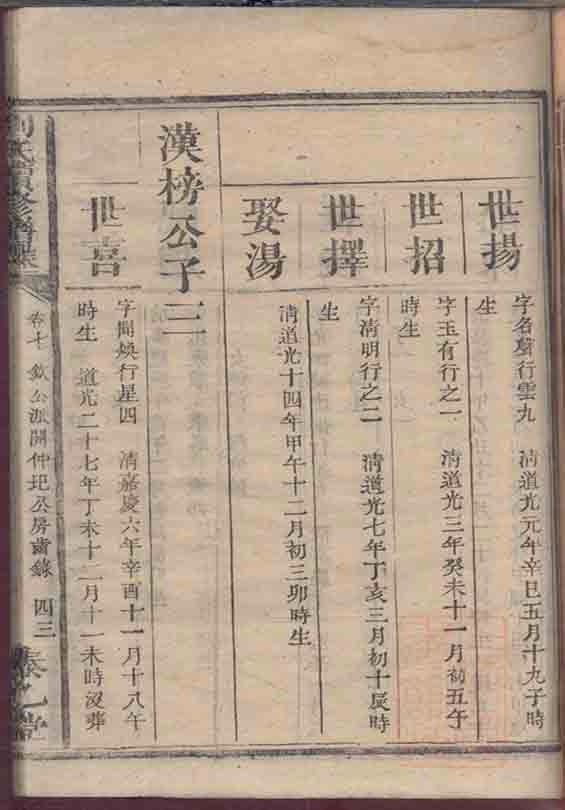 世揚
字名馨行雲九 清道光元年辛巳五月十九子時
生
世招
字玉有行之一 清道光三年癸未十一月初五午
時生
世擇
字清明行之二 清道光七年丁亥三月初十辰時
生
娶湯
清道光十四年甲午十二月初三卯時生
漢榜公子三
世喜
字開煥行星四 清嘉慶六年辛酉十一月十八午
時生 道光二十七年丁未十二月十一未時沒葬
氏續修譜
卷七 欽公派開仲玘公房齒錄 四三